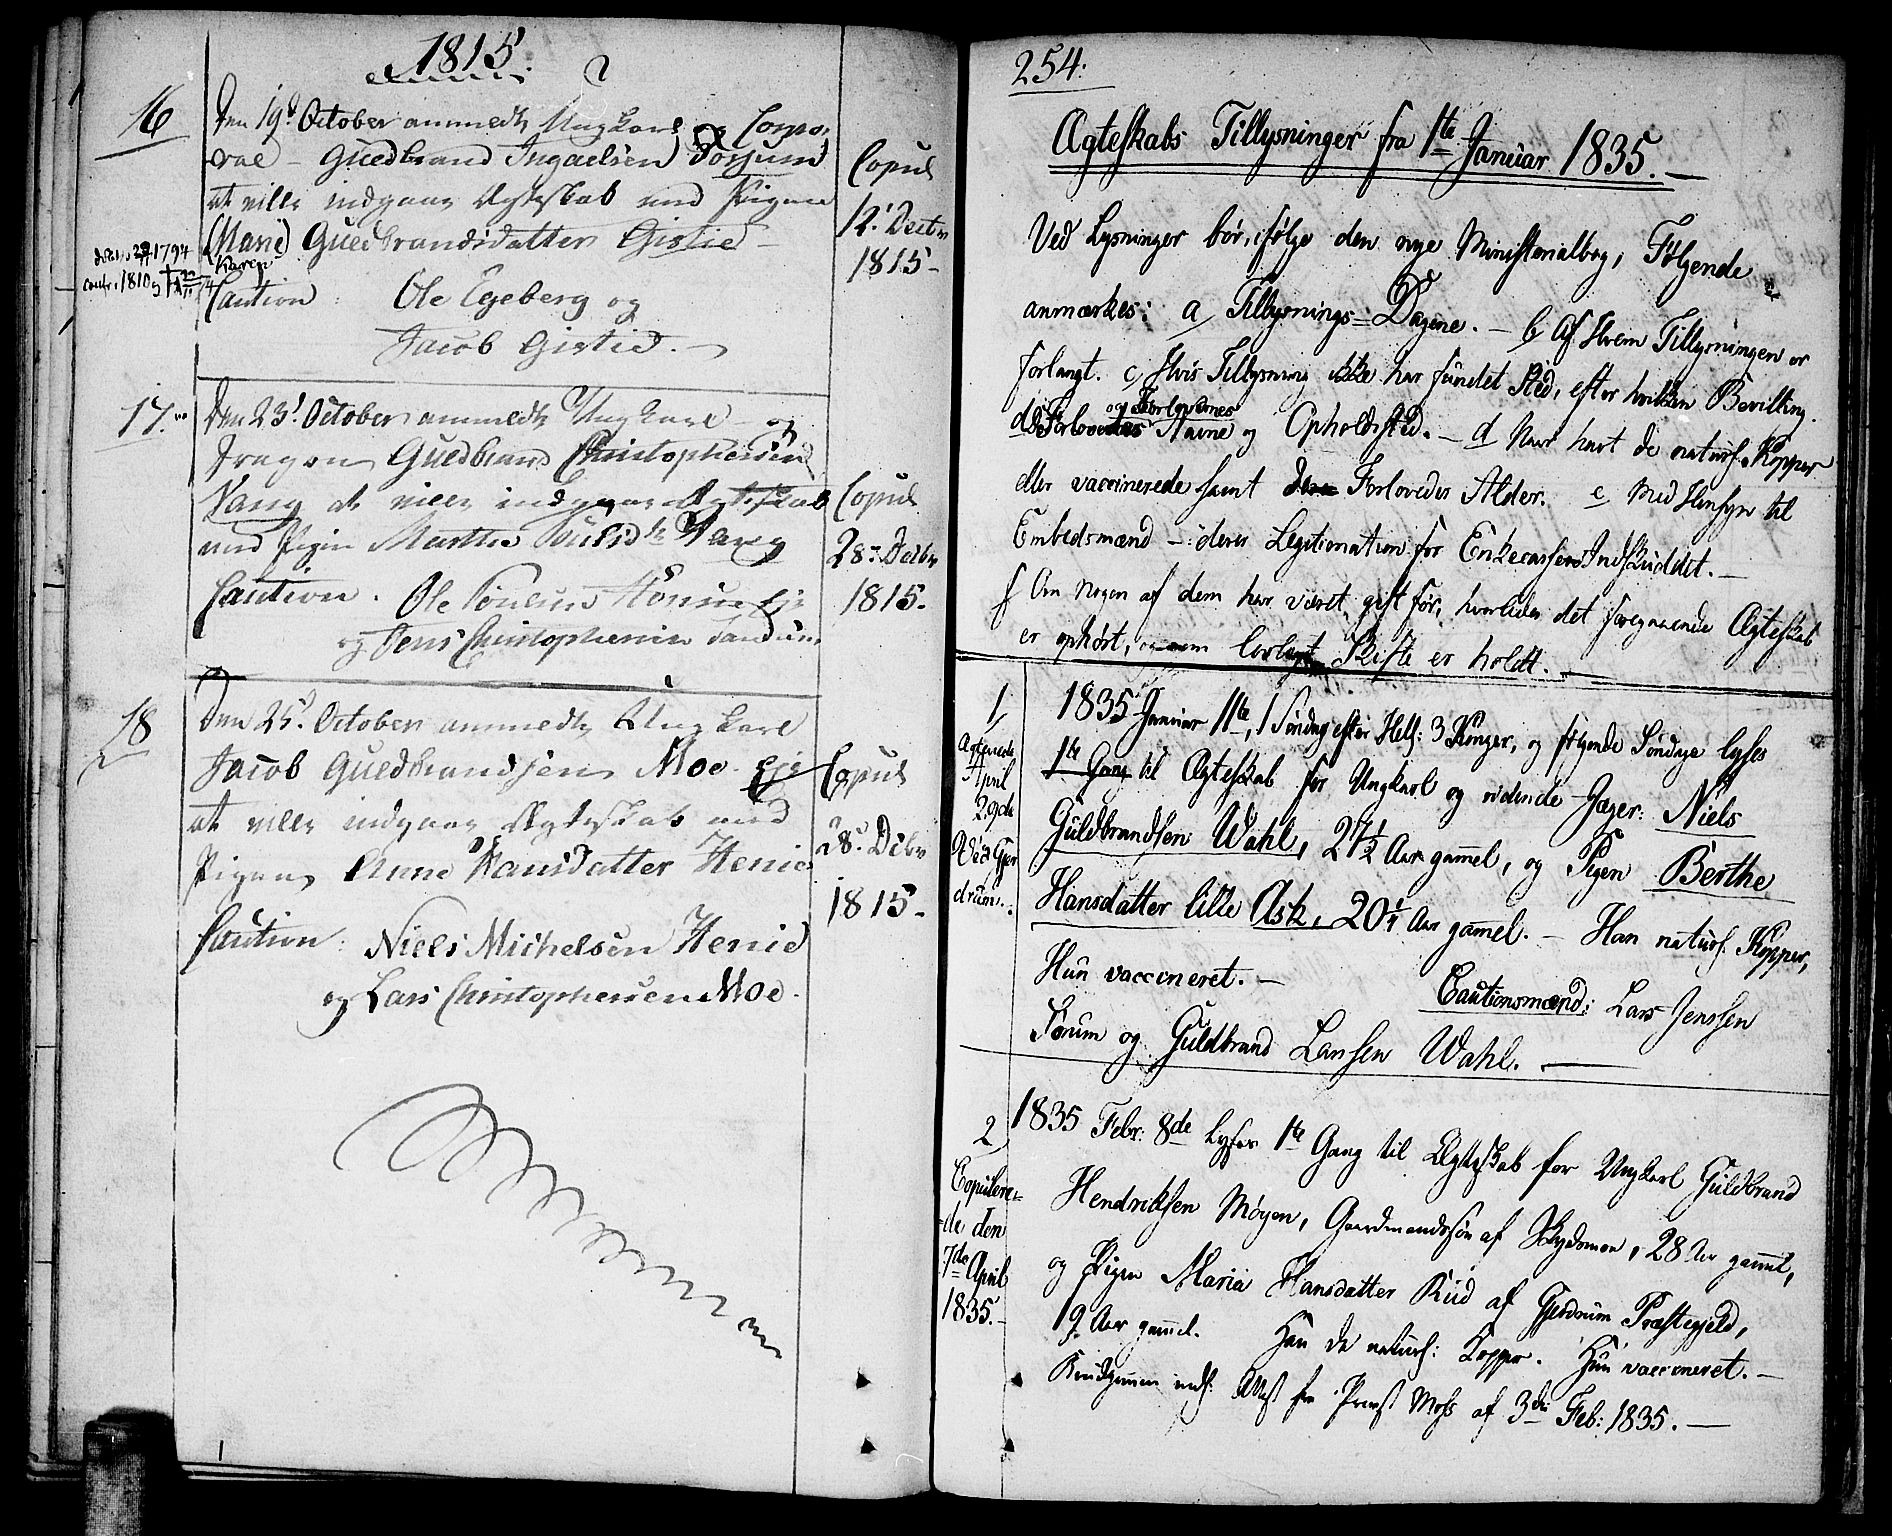 1815.
16
Den 19d October anmeldte Ungkarl og Corpo-
ral - Guldbrand Ingaelsen
at ville indgaae Ægteskab med Pigen
(Marie) Guldbrandsdatter Gistie -
Karen
1794
confr. 1810
Caution: Ole Egeberg og
Jacob Gistie. -
Copul
12t Decbr
1815 -
17.
Den 23d October anmeldte Ungkarl - og
Dragon Guldbrand Christophersen
Vang at ville indgaae Ægteskab
med Pigen Marthe Poulsdtr Vang
Caution. Ole Poulsen
og Jens Christophersen
Copul
28- Decbr
1815.
18
Den 25d October anmeldte Ungkarl
Jacob Guldbrandsen Moe - eje
at ville indgaae Ægteskab med
Pigen Anne Hansdatter Henie
Caution: Niels Michelsen Henie
og Lars Christophersen Moe.
Copul
28d Dcbr
1815 -
254.
Ægteskabs Tillysninger fra 1te Januar 1835. -
Ved Lysninger bør, ifølge den nye Ministerialbog, Følgende
anmærkes: a, Tillysnings=Dagene. - b, Af Hvem Tillysningen er
forlangt. c, Hvis Tillysning ikke har fundet Sted, efter hvilken Bevilling.
og Forlovernes
de Forlovedes Navne og Opholdssted. - d Naar havt de naturl. Kopper
eller vaccinerede samt Forlovedes Alder. e, Med Hensyn til
Embedsmænd - deres Legitimation for Enkecassens Indskuddet. -
f Om Nogen af dem har været gift før, hvorledes det foregaaende Ægteskab
er ophørt, og om lovligt Skifte er holdt. -
1,
1835 Januar 11te, 1 Søndag efter Hell: 3 Konger, og følgende Søndage lyses
1te Gang til Ægteskab for Ungkarl og ridende Jæger: Niels
Guldbrandsen Wahl, 27½ Aar gammel, og Pigen Berthe
Hansdatter lille Ask, 20¼ Aar gammel. - Han naturl. Kopper,
Hun vaccineret. - Cautionsmænd: Lars Jenssen
Sørum og Guldbrand Larssen Wahl. -
April
29de
Ved Gjer
drum.
2
1835 Febr: 8de lyses 1te Gang til Ægteskab for Ungkarl Guldbrand
Hendriksen Møyen, Gaardmandssøn af Skydsmoe, 28 Aar gammel,
og Pigen Maria Hansdatter Rud af Gjerdrum Præstegjeld,
19 Aar gammel. Han de naturl: Kopper. Hun vaccineret. -
Brudgommen indl: Attest fra Præst Moss af 3die Feb: 1835. -
Copulere-
de den
7de April
1835. -